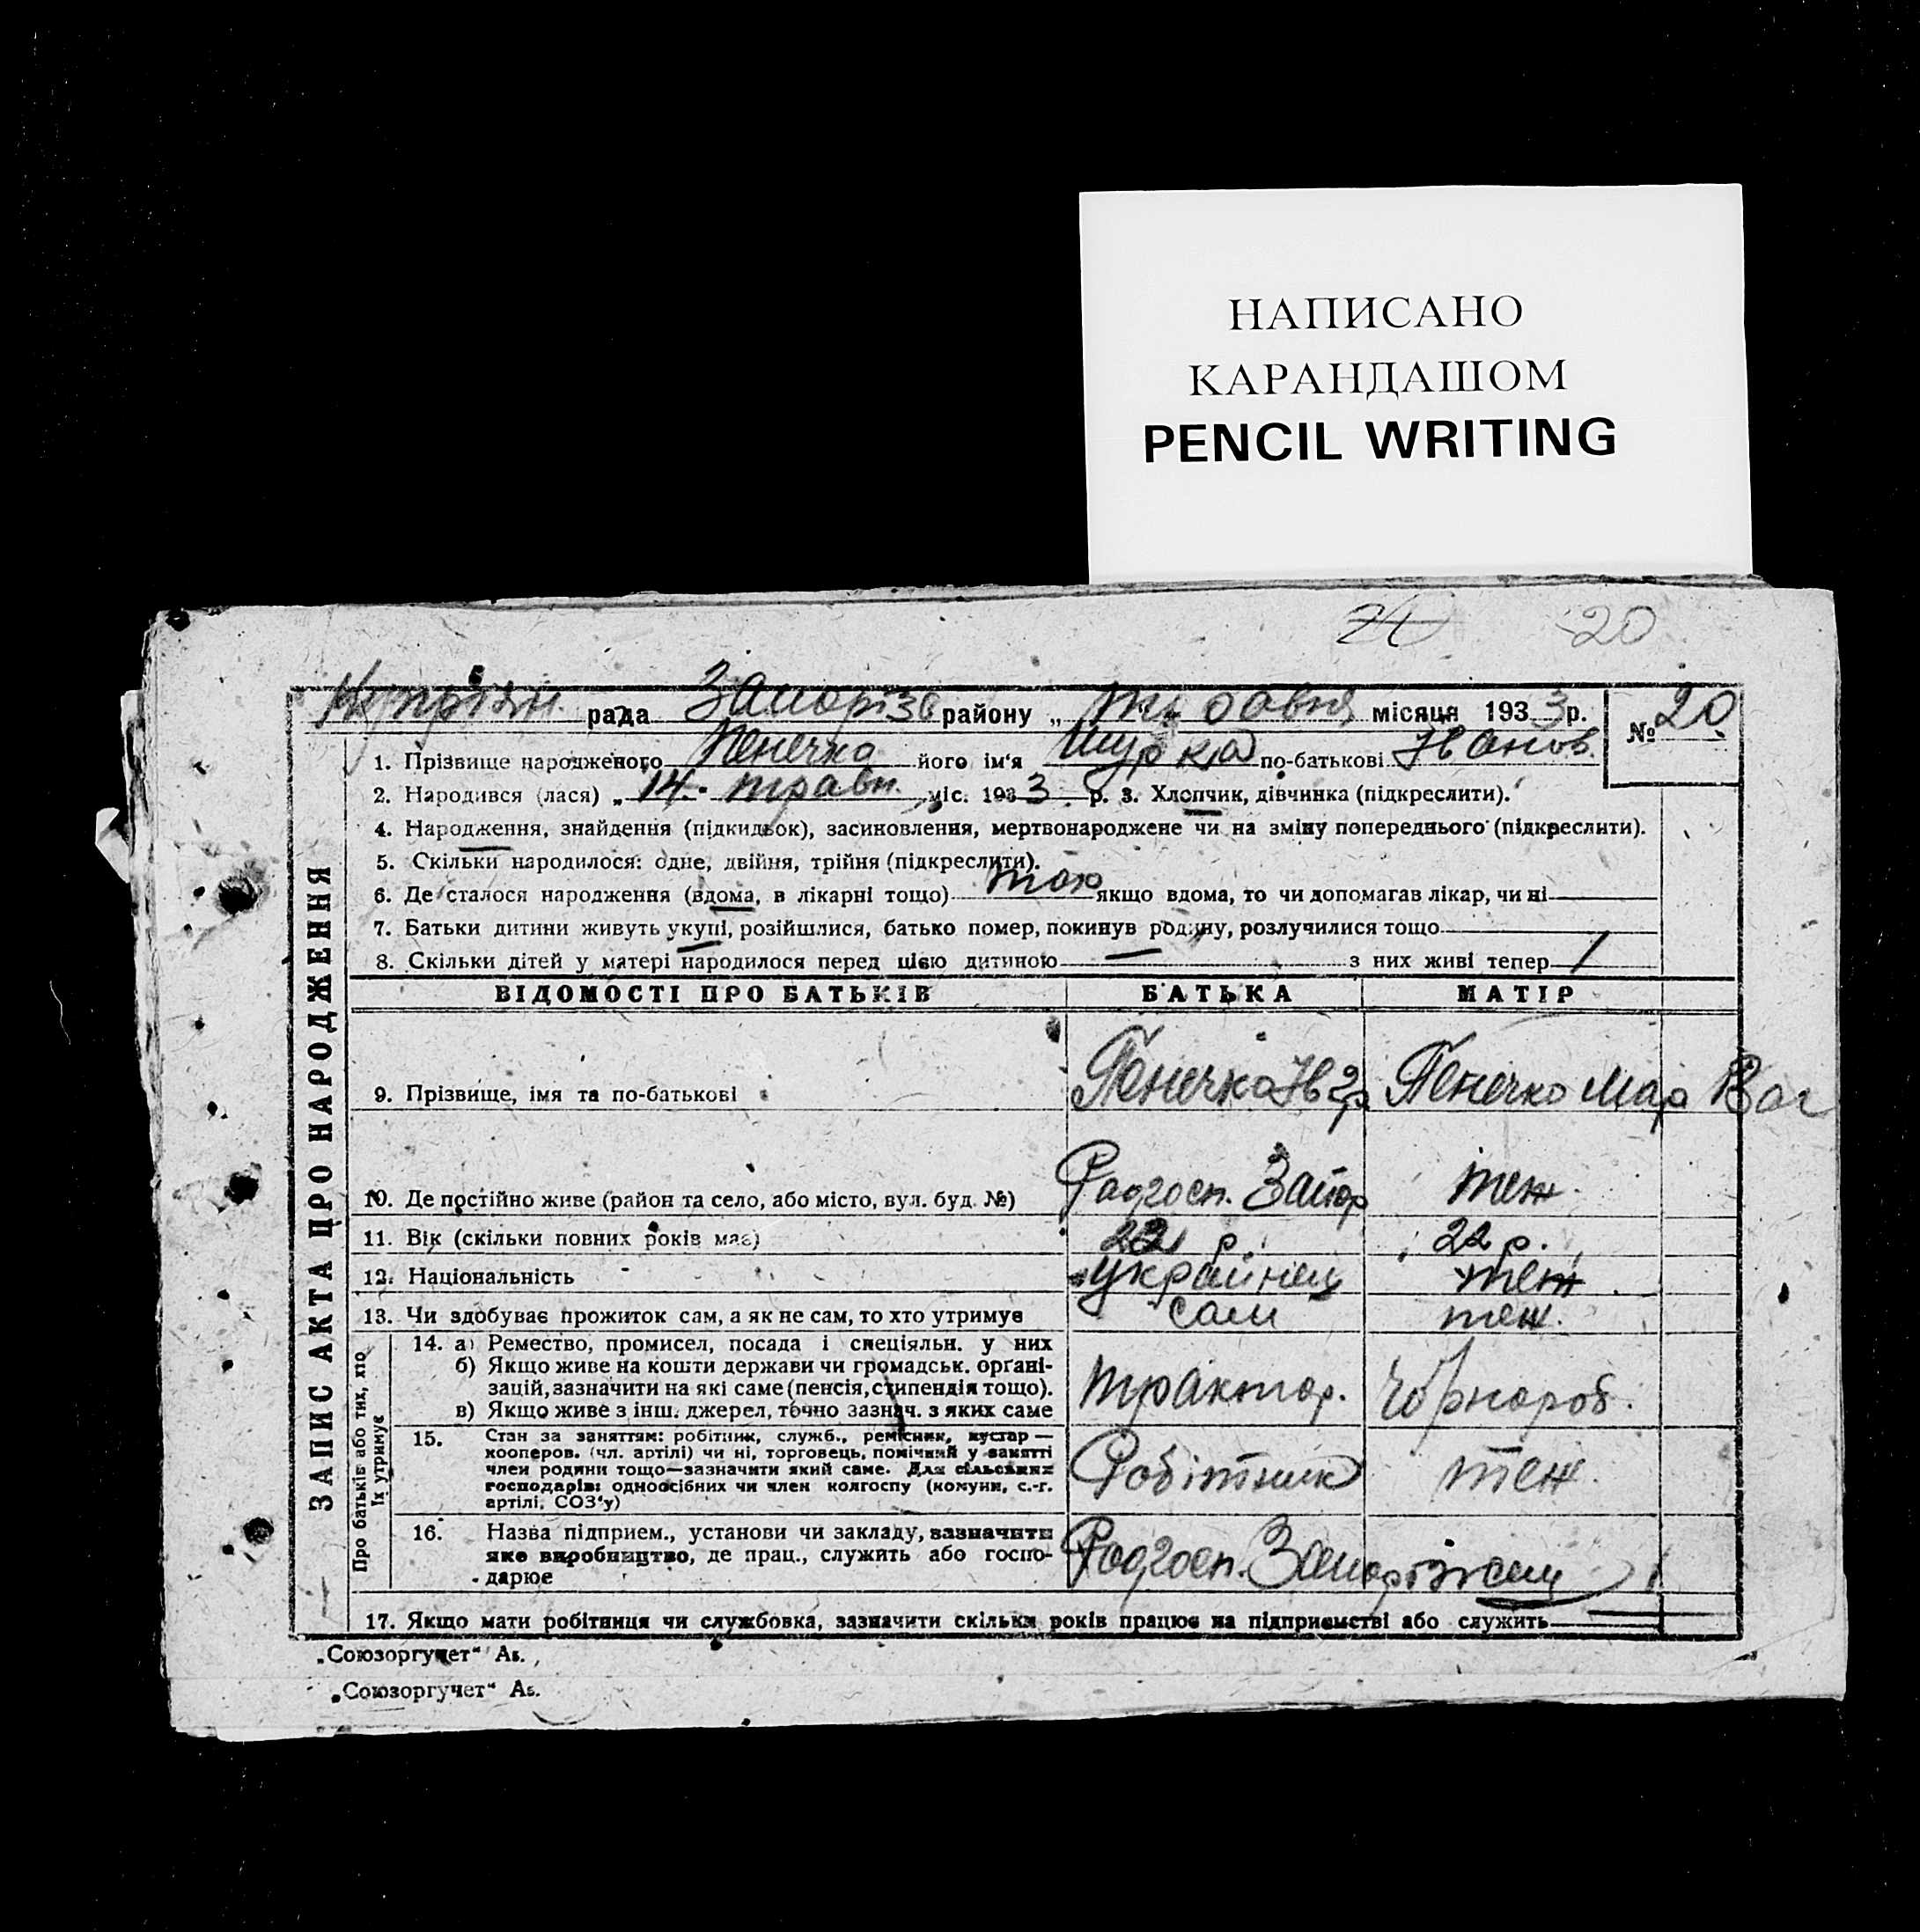 НАПИСАНО
КАРАНДАШОМ
PENCIL WRITING
20
рада Запорізь району „ травня місяця 1933 р. № 20
1. Прізвище народженого Пенечко його ім'я Шурка по-батькові Иванов.
2. Народився (лася) „14. травн. міс. 1933 р. 3. Хлопчик, дівчинка (підкреслити).
4. Народження, знайдення (підкидьок), засиновлення, мертвонароджене чи на зміну попереднього (підкреслити).
5. Скільки народилося: одне, двійня, трійня (підкреслити).
6. Де сталося народження (вдома, в лікарні тощо) якщо вдома, то чи допомагав лікар, чи ні —
7. Батьки дитини живуть укупі, розійшлися, батько помер, покинув родину, розлучилися тощо
8. Скільки дітей у матері народилося перед цією дитиною — з них живі тепер /
ЗАПИС АКТА ПРО НАРОДЖЕННЯ
ВІДОМОСТІ ПРО БАТЬКІВ БАТЬКА МАТІР
9. Прізвище, імя та по-батькові Пенечко Ив Пенечко Мар Вас
10. Де постійно живе (район та село, або місто, вул. буд. №) Радгосп. Запор теж.
11. Вік (скільки повних років має) 22 р. 22 р.
12. Національність українец теж
13. Чи здобуває прожиток сам, а як не сам, то хто утримує сам теж.
Про батьків або тих, хто
їх утримує
14. а) Ремество, промисел, посада і спеціяльн. у них
б) Якщо живе на кошти держави чи громадськ. органі-
зацій, зазначити на які саме (пенсія, стипендія тощо).
в) Якщо живе з інш. джерел, точно зазнач. з яких саме
трактор. Чорнороб.
15. Стан за заняттям: робітник, служб., ремісник, кустар —
кооперов. (чл. артілі) чи ні, торговець, помічний у занятті
член родини тощо—зазначити який саме. Для сільських
господарів: одноосібних чи член колгоспу (комуни, с.-г.
артілі, СОЗ'у)
Робітник теж.
16. Назва підприєм., установи чи закладу, зазначити
яке виробництво, де прац., служить або госпо-
дарює
Радгосп.
17. Якщо мати робітниця чи службовка, зазначити скільки років працює на підприємстві або служить —
„Союзоргучет“ Аб.
„Союзоргучет“ Аб.